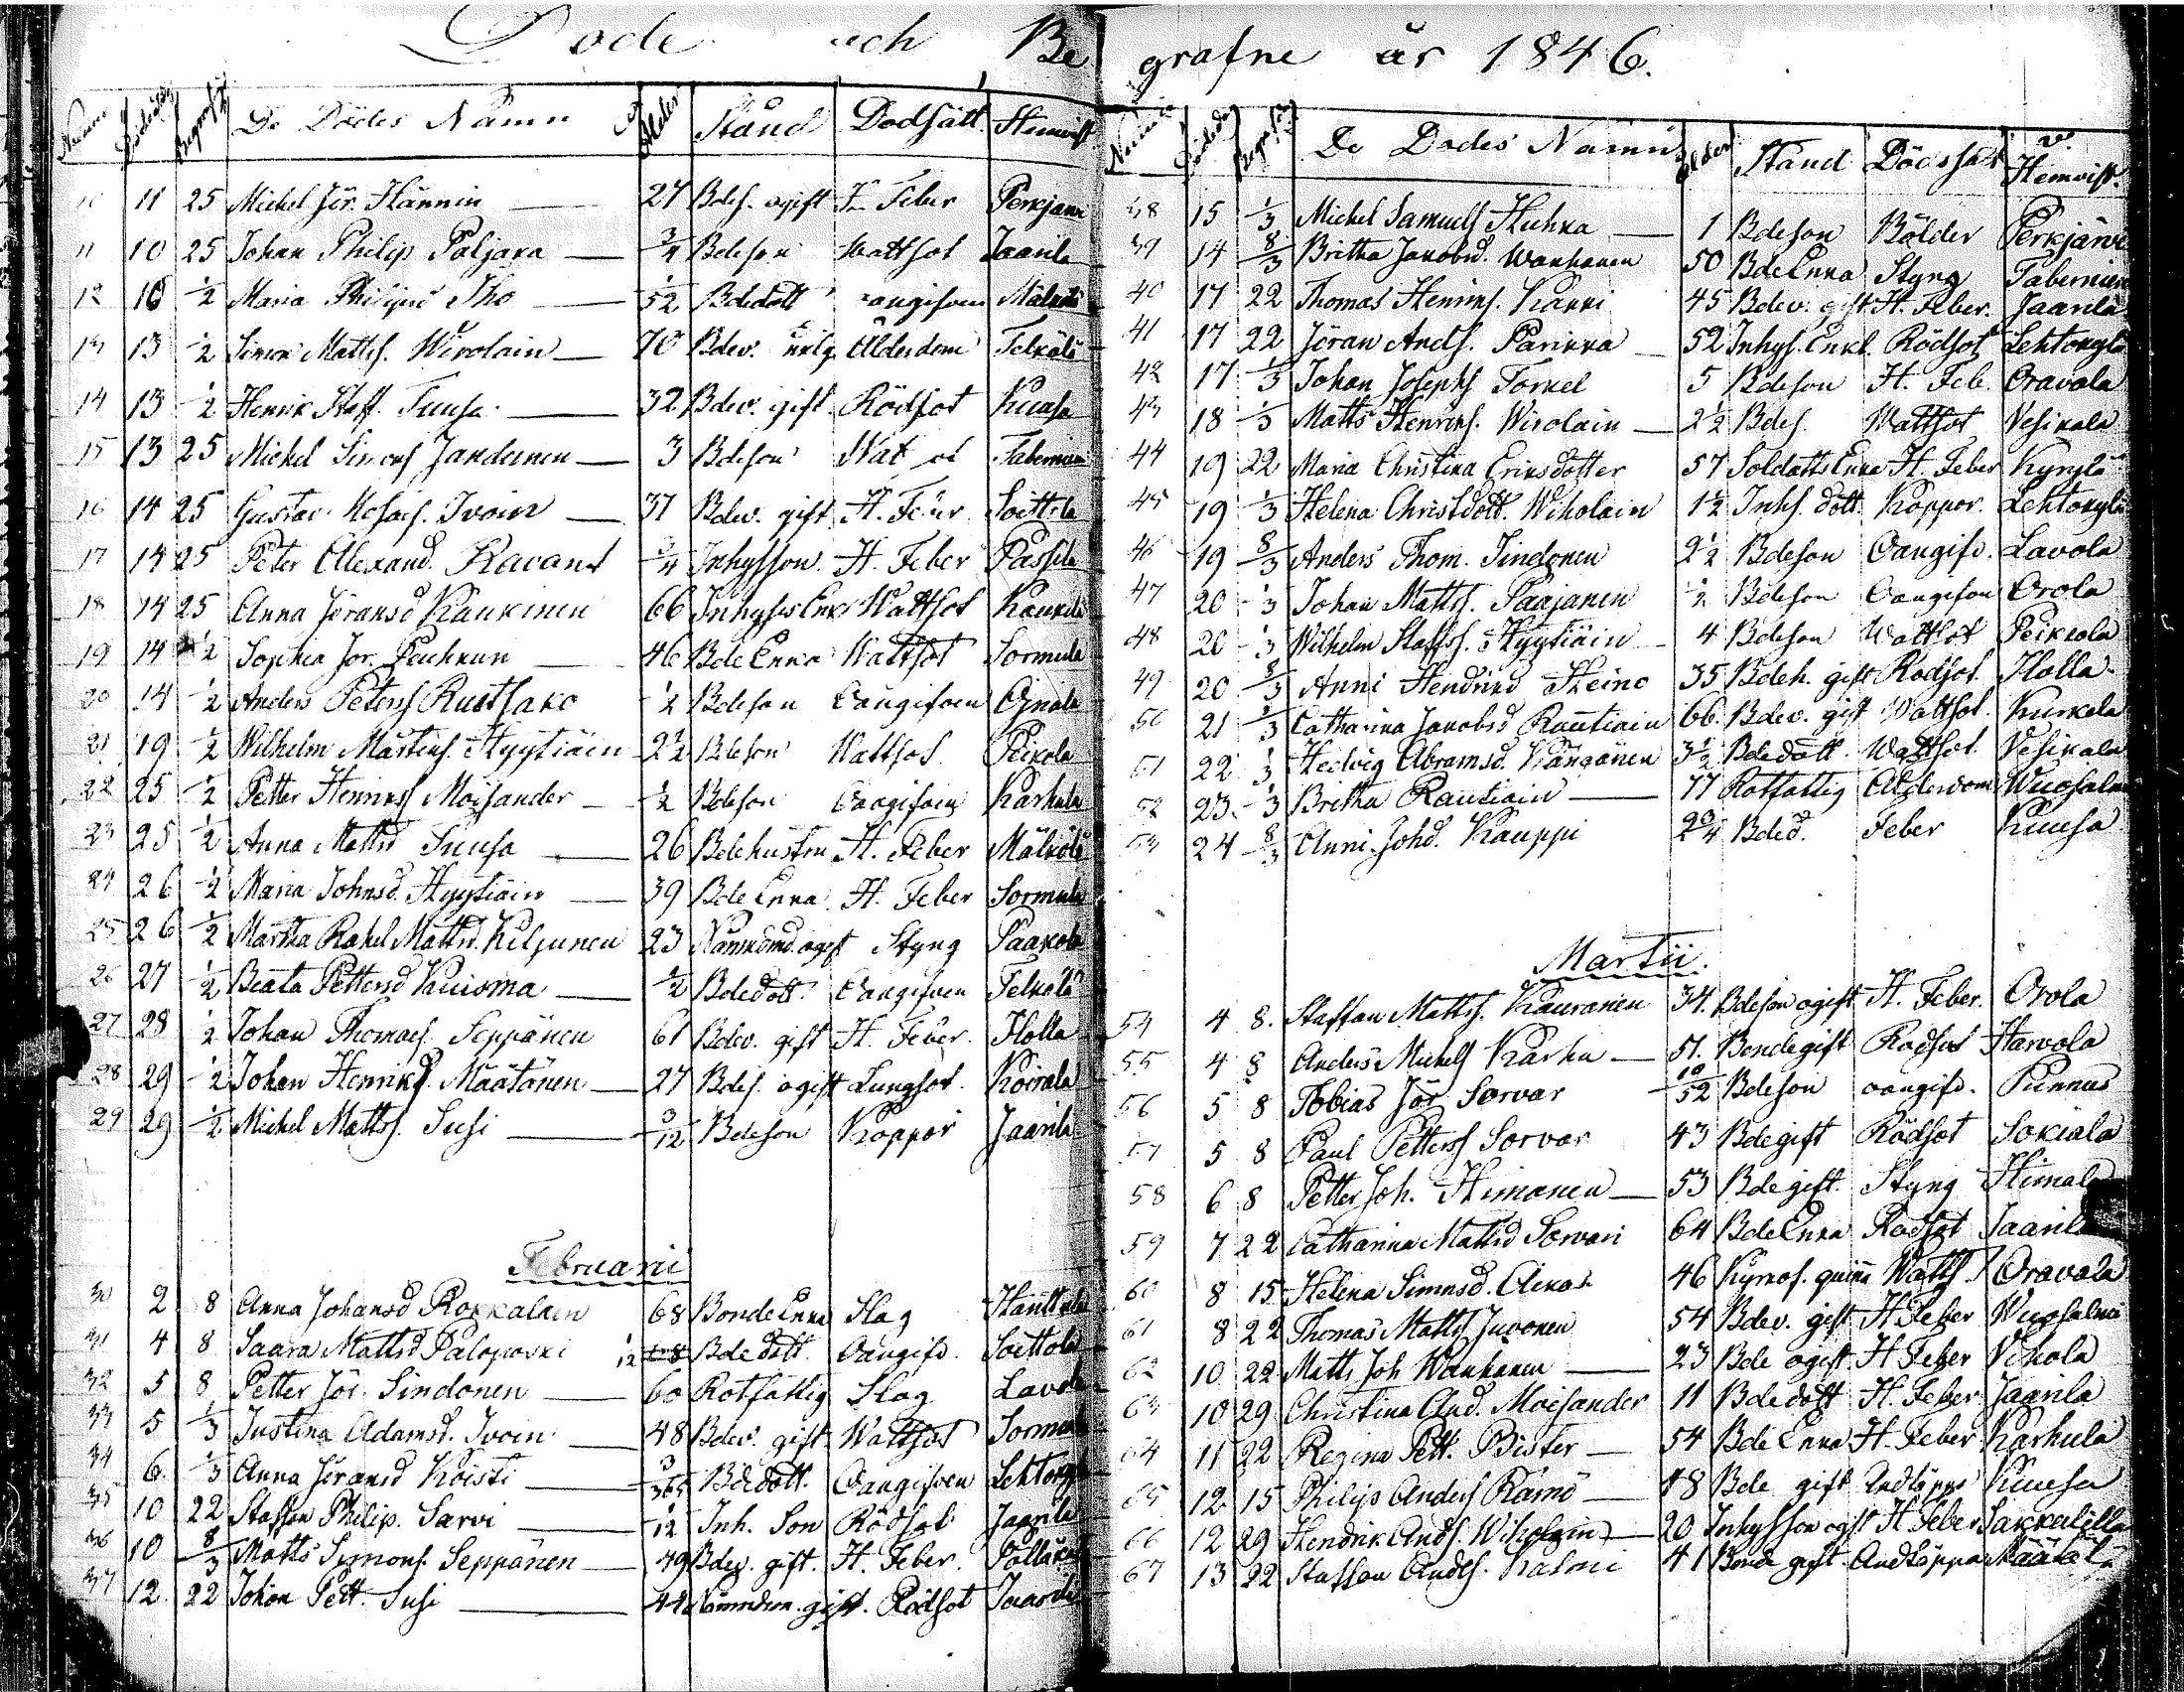 Döde och Be
De Dödes Namn Ålder Stånd Dödsätt Hemvist
11 25 Michel Jör. Hännin 27 Bdes. ogift H. Feber Perkjärvi
11 10 25 Johan Philip Paljaka 3/4 Bdeson Wattsot Jaarila
12 10 1/2 Maria Philipsd Iho 1/52 Bdedott oangifven Mälkölä
13 13 1/2 Simon Mattss. Wirolain 70 Bdev. enkl. Ålderdom Telkälä
14 13 1/2 Henrik Staff. Tuusa 32 Bdev. gift Rödsot Kuusa
15 13 25 Michel Simons Jandunen 3 Bdeson Wat Tabernien
16 14 25 Gustav Mosaes. Ivoin 37 Bdev. gift H. Feber Soittola
17 14 25 Peter Alexand. Kavant 3/4 Inhysson H. Feber Passila
18 14 25 Anna Jöransd Kaukinen 66 Inhyses Enk. Wattsot Kaukila
19 14 1/2 Sophia Jör. Puhkun 46 Bde Enka Wattsot Sormula
20 14 1/2 Anders Peterss Ruotsako 1/2 Bdeson Oangifven Ojnala
21 19 1/2 Wilhelm Mårtens. Hyytiäin 2 1/2 Bdeson Wattsot Peikola
22 25 1/2 Petter Henrikss Moisander 1/2 Bdeson Oangifven Karhula
23 25 1/2 Anna Mattsd Tuusa 26 Bdehustru H. Feber Mälkölä
24 26 1/2 Maria Johansd. Hyytiäin 39 Bde Enka H. Feber Sormula
25 26 1/2 Martha Rakel Mattsd. Kiljunen 23 ogift Styng Paakola
26 27 1/2 Beata Pettersd Kuisma 1/2 Bdedott. Oangifven Telkälä
27 28 1/2 Johan Thomaes. Seppänen 61 Bdev. gift H. Feber. Ilolla
28 29 1/2 Johan Henrikss. Määtänen 27 Bdes. ogift Lungsot. Koirala
29 29 1/2 Michel Mattss. Susi 3/12 Bdeson Koppor Jaarila
Februarii
30 2 8 Anna Johansd Rokkalain 68 Bonde Enka Slag Hanttula
31 4 8 Saara Mattsd Paloposki 1/12 Bde dott. Oangifv. Soittola
32 5 8 Petter Jör. Sindonen 60 Rotfattig Slag Lavola
33 5 1/3 Justina Adamsd. Ivoin 48 Bdev. gift Wattsot Sormula
34 6 1/3 Anna Jöransd Koisti 3/365 Bdedott. Oangifven Lehtokylä
35 10 22 Staffan Philip. Sarvi 1/12 Inh. Son Rödsot Jaarila
36 10 8/3 Matts Simons. Seppänen 49 Bdev. gift. H. Feber. Pällälä
37 12 22 Johan Pett. Susi 44 gift. Rödsot Jaarila
grafne år 1846.
De Dödes Namn Ålder Stånd Dödssätt Hemvist.
38 15 1/3 Michel Samuels Huhka 1 Bdeson Bölder Perkjärvi
39 14 8/3 Britha Jakobsd. Wanhanen 50 Bde Enka Styng Tabernien
40 17 22 Thomas Henriks. Karki 45 Bdev. gift H. Feber. Jaarila
41 17 22 Jöran Ands. Parikka 52 Inhys. Enkl. Rödsot Lehtokylä
42 17 1/3 Johan Josephs Torkel 5 Bdeson H. Feb. Oravala
43 18 1/3 Matts Henriks. Wirolain 2 1/2 Bdes. Wattsot Vesikala
44 19 22 Maria Christina Eriksdotter 57 Soldatts Enka H. Feber Kyrylä
45 19 1/3 Helena Christdott. Wiholain 1 1/2 Inhs. dott. Koppor. Lehtokylä
46 19 8/3 Anders Thom. Sindonen 2 1/2 Bdeson Oangifv. Lavola
47 20 1/3 Johan Mattss. Paajanen 1/2 Bdeson Oangifven Orola
48 20 1/3 Wilhelm Staffs. Hyytiäin 4 Bdeson Wattsot Peikkola
49 20 8/3 Anni Hendriksd Heino 35 Bdeh. gift Rödsot. Ilolla
50 21 1/3 Catharina Jakobsd Rautiain 66. Bdev. gift Wattsot. Kurkela
51 22 1/3 Hedvig Abramsd. Kangänen 3 1/2 Bdedott. Wattsot. Vesikala
52 23 1/3 Britha Rautiain 77 Rotfattig Ålderdom Wuosalmi
53 24 8/3 Anni Johd. Kauppi 2 3/4 Bded. Feber Kuusa
Martii.
54 4 8. Staffan Mattss. Kauranen 34. Bdeson ogift H. Feber. Orola
55 4 8 Anders Michels Karhu 51. Bonde gift Rödsot Harvola
56 5 8 Tobias Jör Sorvar 10/52 Bdeson oangifv. Punnus
57 5 8 Paul Petterss Sorvar 43 Bde gift Rödsot Sokiala
58 6 8 Petter Joh. Himanen 53 Bde gift. Styng Himala
59 7 22 Catharina Mattsd Sorvari 64 Bde Enka Rödsot Jaarila
60 8 15 Helena Simnsd. 46 Kyrkof. Watts. Oravala
61 8 22 Thomas Mattss Juvonen 54 Bdev. gift H. Feber Wuosalmi
62 10 22 Matts Joh Wanhanen 23 Bde ogift H Feber Vikola
63 10 29 Christina And. Moisander 11 Bdedott H. Feber Jaarila
64 11 22 Regina Pett. Pister 54 Bde Enka H. Feber Karhula
65 12 15 Philip Anders Rämö 48 Bde gift Andtäppa Kuusa
66 12 29 Hendrik Ands. Wiholain 20 Inhysson ogft H Feber Sakkalilla
67 13 22 Staffan Andes. Kalmi 41 Bonde gift Andtäppa Näätälä